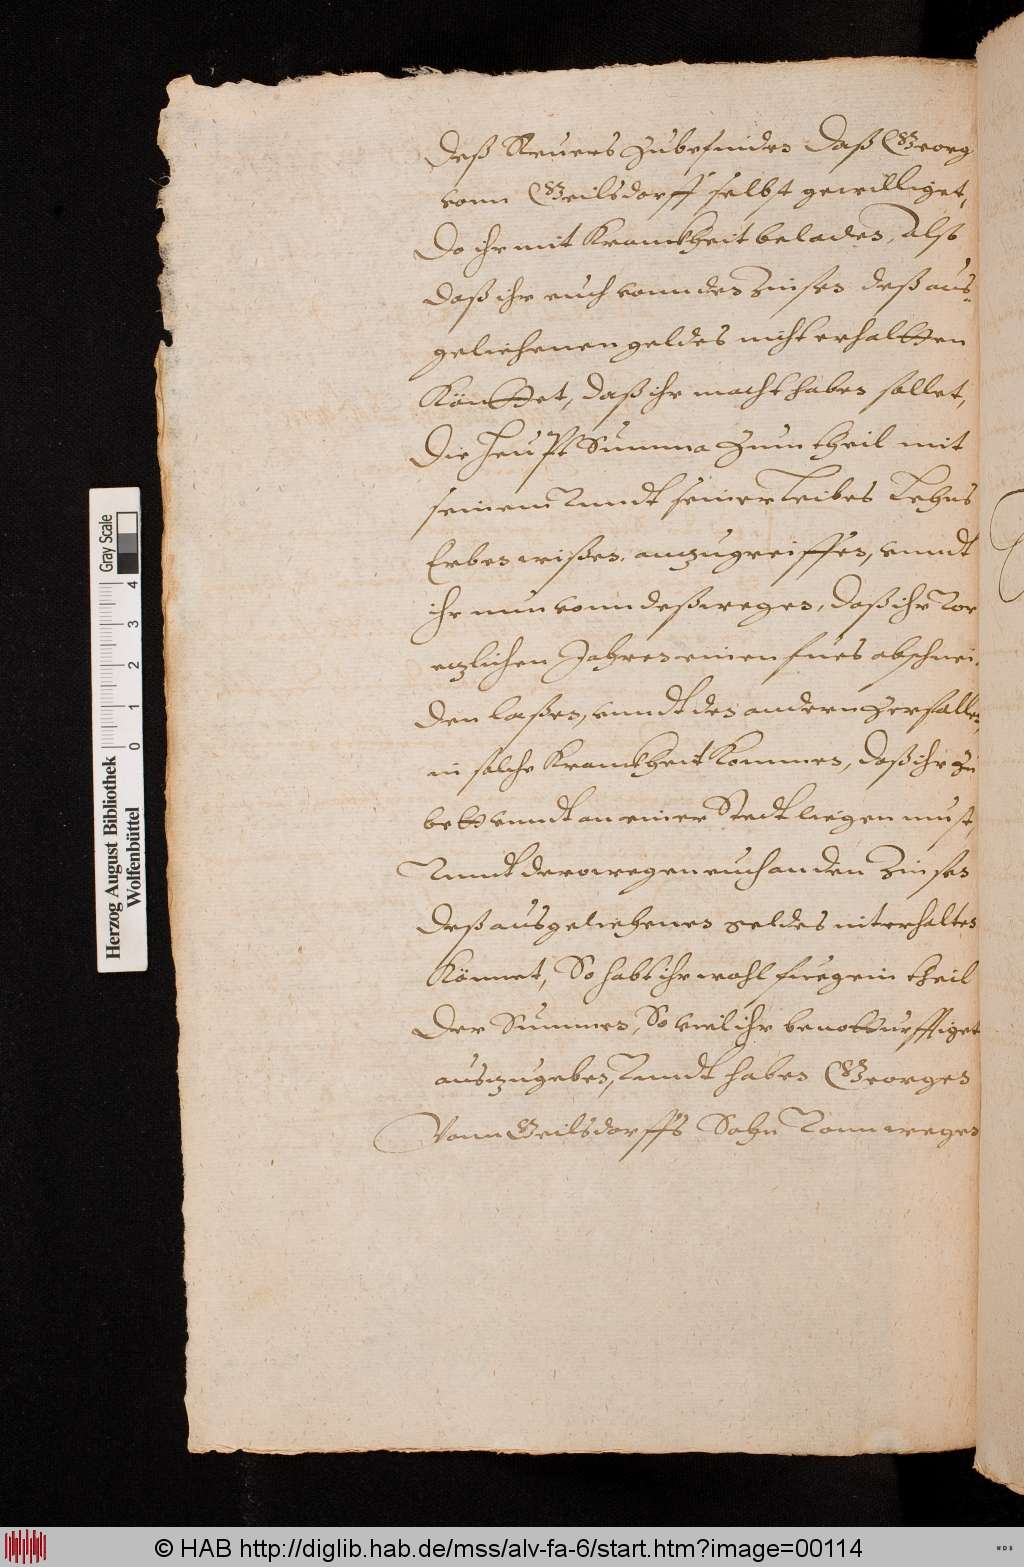 deß Reuers zubefinden daß Georg
vonn Geilsdorff selbst gewilliget,
Do ihr mit Kranckheit beladen, also
daß ihr euch vonn den Zinsen deß aus-
geliehenen geldes nicht erhaltten
Könttet, daß ihr macht haben sollet,
Die Heupt Summa zum theil mit
seinem Vnndt seiner Leibes Lehns
Erben wißen anzugreiffen, vnndt
ihr nun vonn deßwegen, daß ihr Vor
etzlichen Jahren einen fues abschnei-
den laßen, vnndt den andern zerfallen,
in solche Kranckheit Kommen, daß ihr zu
bett vnndt an einer Stedt liegen must,
Vnndt derowegen euch an den Zinsen
deß ausgeliehenen geldes nit erhalten
Könnet, So habt ihr wohl fueg ein theil
der Summen, So viel ihr benotturfftiget
auszugeben, Vnndt haben Georgen
Vonn Geilsdorffs Sohn Vonn wegen
Herzog August Bibliothek
Wolfenbüttel
0 1 2 3 4
Gray Scale
© HAB http://diglib.hab.de/mss/alv-fa-6/start.htm?image=00114
WDB